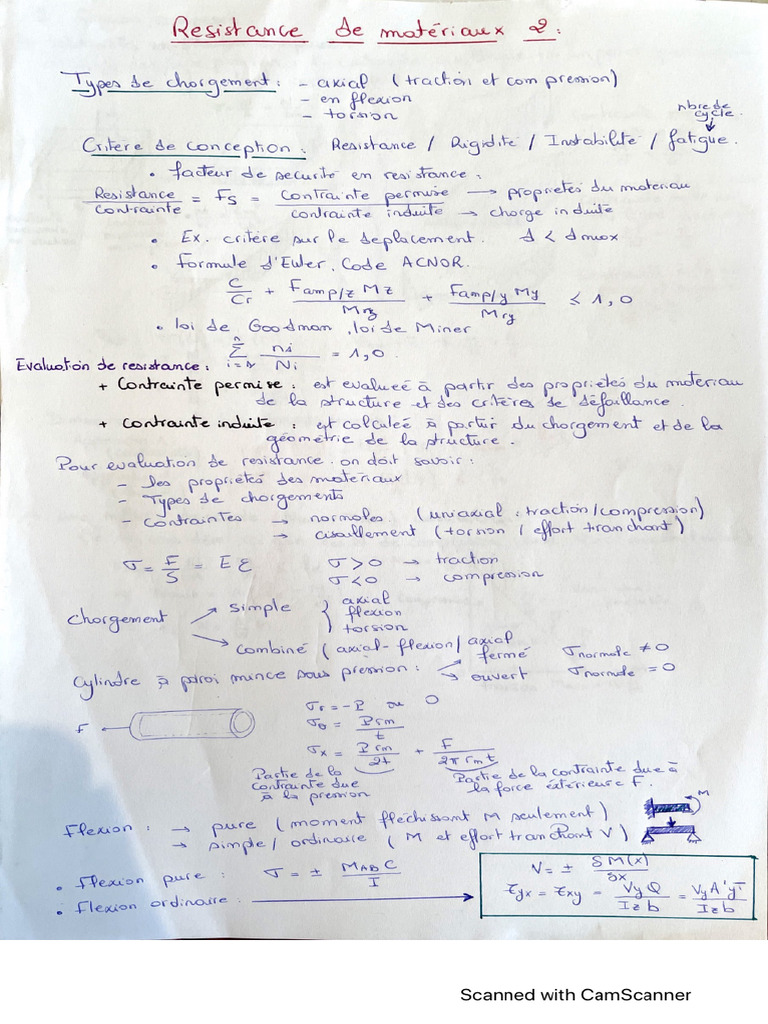 Resistance de matériaux 2 :
Types de chargement : - axial (traction et compression)
- en flexion
- torsion
nbre de cycle.
Critère de conception : Resistance / Rigidité / Instabilité / fatigue.
• facteur de securité en resistance :
Resistance / contrainte = Fs = contrainte permise / contrainte induite → proprietés du materiau → charge induite
• Ex. critère sur le deplacement. d < dmax
• Formule d'Euler, Code ACNOR.
C / Cr + Famp/z Mz / Mrz + Famp/y My / Mry ≤ 1,0
• loi de Goodman, loi de Miner
Evaluation de resistance : n Σ i=1 ni / Ni = 1,0.
+ Contrainte permise : est evalueé à partir des proprietés du materiau
de la structure et des critères de défaillance.
+ contrainte induite : est calculeé à partir du chargement et de la
géometrie de la structure.
Pour evaluation de resistance on doit savoir :
- les proprietés des materiaux
- Types de chargements
- contraintes → normales (uniaxial : traction/compression)
→ cisaillement (torsion / effort tranchant)
σ = F / S = E ε σ > 0 → traction
σ < 0 → compression
chargement → simple } axial
flexion
torsion
→ combiné (axial-flexion / axial
Cylindre à paroi mince sous pression : → fermé σnormale ≠ 0
→ ouvert σnormale = 0
F ← σr = -P ou 0
σθ = P rm / t
σx = P rm / 2t + F / 2π rm t
Partie de la contrainte due à la pression
Partie de la contrainte due à la force extérieure F.
M
Flexion : → pure (moment fléchissant M seulement)
→ simple / ordinaire (M et effort tranchant V)
• Flexion pure : σ = ± MAB C / I
• Flexion ordinaire : →
V = ± δM(x) / δx
τyx = τxy = Vy Q / Iz b = Vy A' ȳ' / Iz b
Scanned with CamScanner